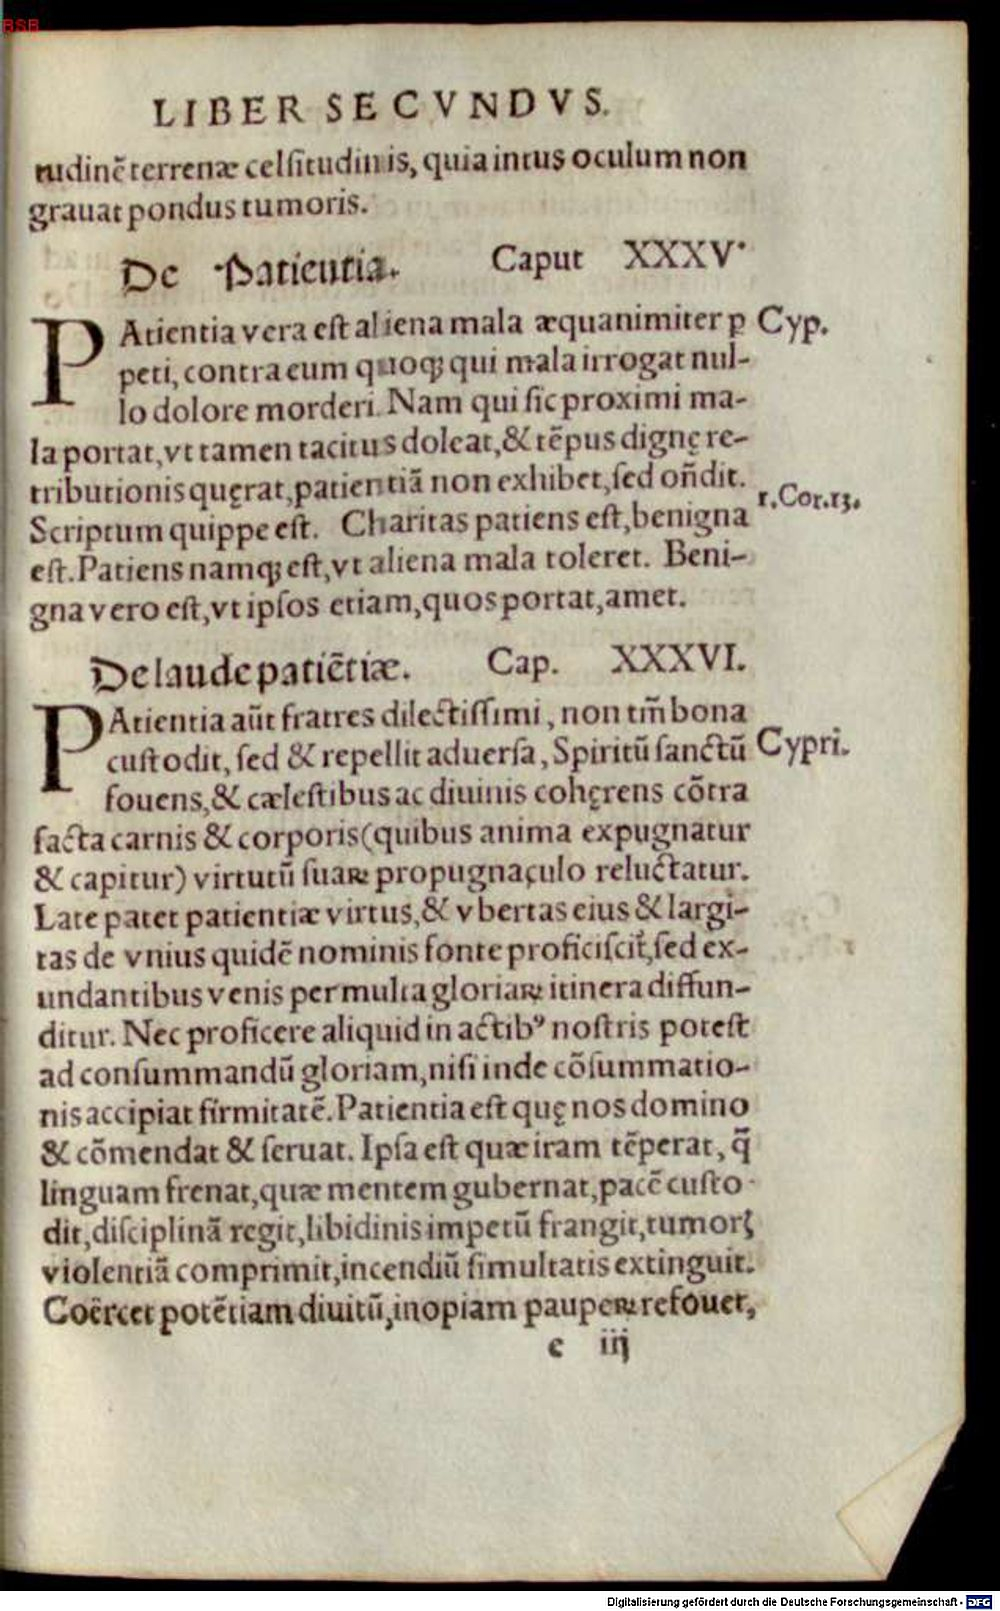 BSB
LIBER SECVNDVS.
tudinẽ terrenæ celſitudinis, quia intus oculum non
grauat pondus tumoris.
De Patientia. Caput XXXV.
PAtientia vera eſt aliena mala æquanimiter ꝑ Cyp.
peti, contra eum quoqꝫ qui mala irrogat nul-
lo dolore morderi. Nam qui ſic proximi ma-
la portat, vt tamen tacitus doleat, & tẽpus dignę re-
tributionis quęrat, patientiã non exhibet, ſed oñdit.
1. Cor. 13.
Scriptum quippe eſt. Charitas patiens eſt, benigna
eſt. Patiens namqꝫ eſt, vt aliena mala toleret. Beni-
gna vero eſt, vt ipſos etiam, quos portat, amet.
De laude patiẽtiæ. Cap. XXXVI.
PAtientia aũt fratres dilectiſſimi, non tm̃ bona
cuſtodit, ſed & repellit aduerſa, Spiritũ ſanctũ Cypri.
fouens, & cæleſtibus ac diuinis cohęrens cõtra
facta carnis & corporis (quibus anima expugnatur
& capitur) virtutũ ſuaꝝ propugnaçulo reluctatur.
Late patet patientiæ virtus, & vbertas eius & largi-
tas de vnius quidẽ nominis fonte proficiſcit᷑, ſed ex-
undantibus venis per multa gloriaꝝ itinera diffun-
ditur. Nec proficere aliquid in actibꝰ noſtris poteſt
ad conſummandũ gloriam, niſi inde cõſummatio-
nis accipiat firmitatẽ. Patientia eſt quę nos domino
& cõmendat & ſeruat. Ipſa eſt quæ iram tẽperat, q̃
linguam frenat, quæ mentem gubernat, pacẽ cuſto-
dit, diſciplinã regit, libidinis impetũ frangit, tumorꝭ
violentiã comprimit, incendiũ ſimultatis extinguit.
Coërcet potẽtiam diuitũ, inopiam pauperꝝ refouet,
c iij
Digitalisierung gefördert durch die Deutsche Forschungsgemeinschaft - DFG